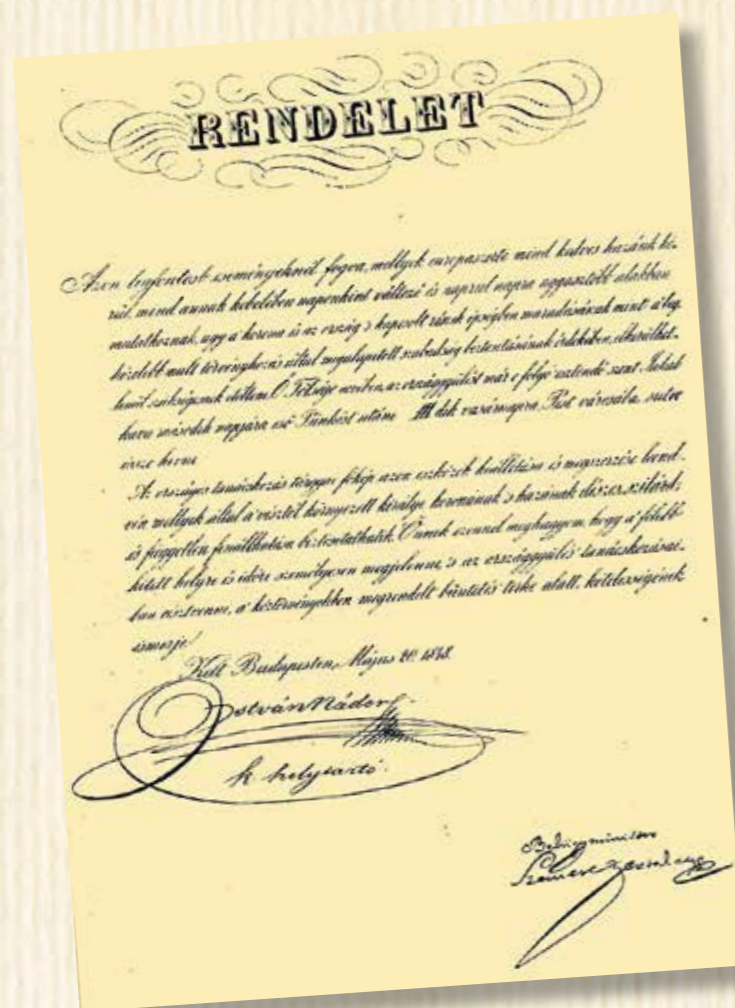 RENDELET
Azon legfontosb eseményeknél fogva, mellyek europaszerte mind kedves hazánk kö-
rül, mind annak kebelében naponként változó és naprul napra aggasztóbb alakban
mutatkoznak, ugy a' korona és az ország 's kapcsolt részek épségben maradásának mint a' leg
közelebb mult törvényhozás által megalapított szabadság biztositásának érdekében, elkerülhet-
lenül szükségesnek véltem Ő Felsége nevében, az országgyülést már e' folyó esztendő szent Jakab
hava második napjára eső Pünköst utáni III dik vasárnapra, Pest városába,
össze hivni
Az országos tanácskozás tárgyai főkép azon eszközök kiállitása és megszerzése leend-
nek mellyek által a' vésztől környezett királyi koronának 's hazának díszes, szilárd,
és független fennállhatása biztosítathatik. Önnek ezennel meghagyom, hogy a' félebb
kitett helyre és időre személyesen megjelenni, 's az országgyülés' tanácskozásai-
ban résztvenni, a' köztörvényekben megrendelt büntetés' terhe alatt, kötelességének
ismerje!
Kelt Budapesten, Május 20. 1848.
István Nádor
k. helytartó.
Belügyminister
Szemere Bertalan